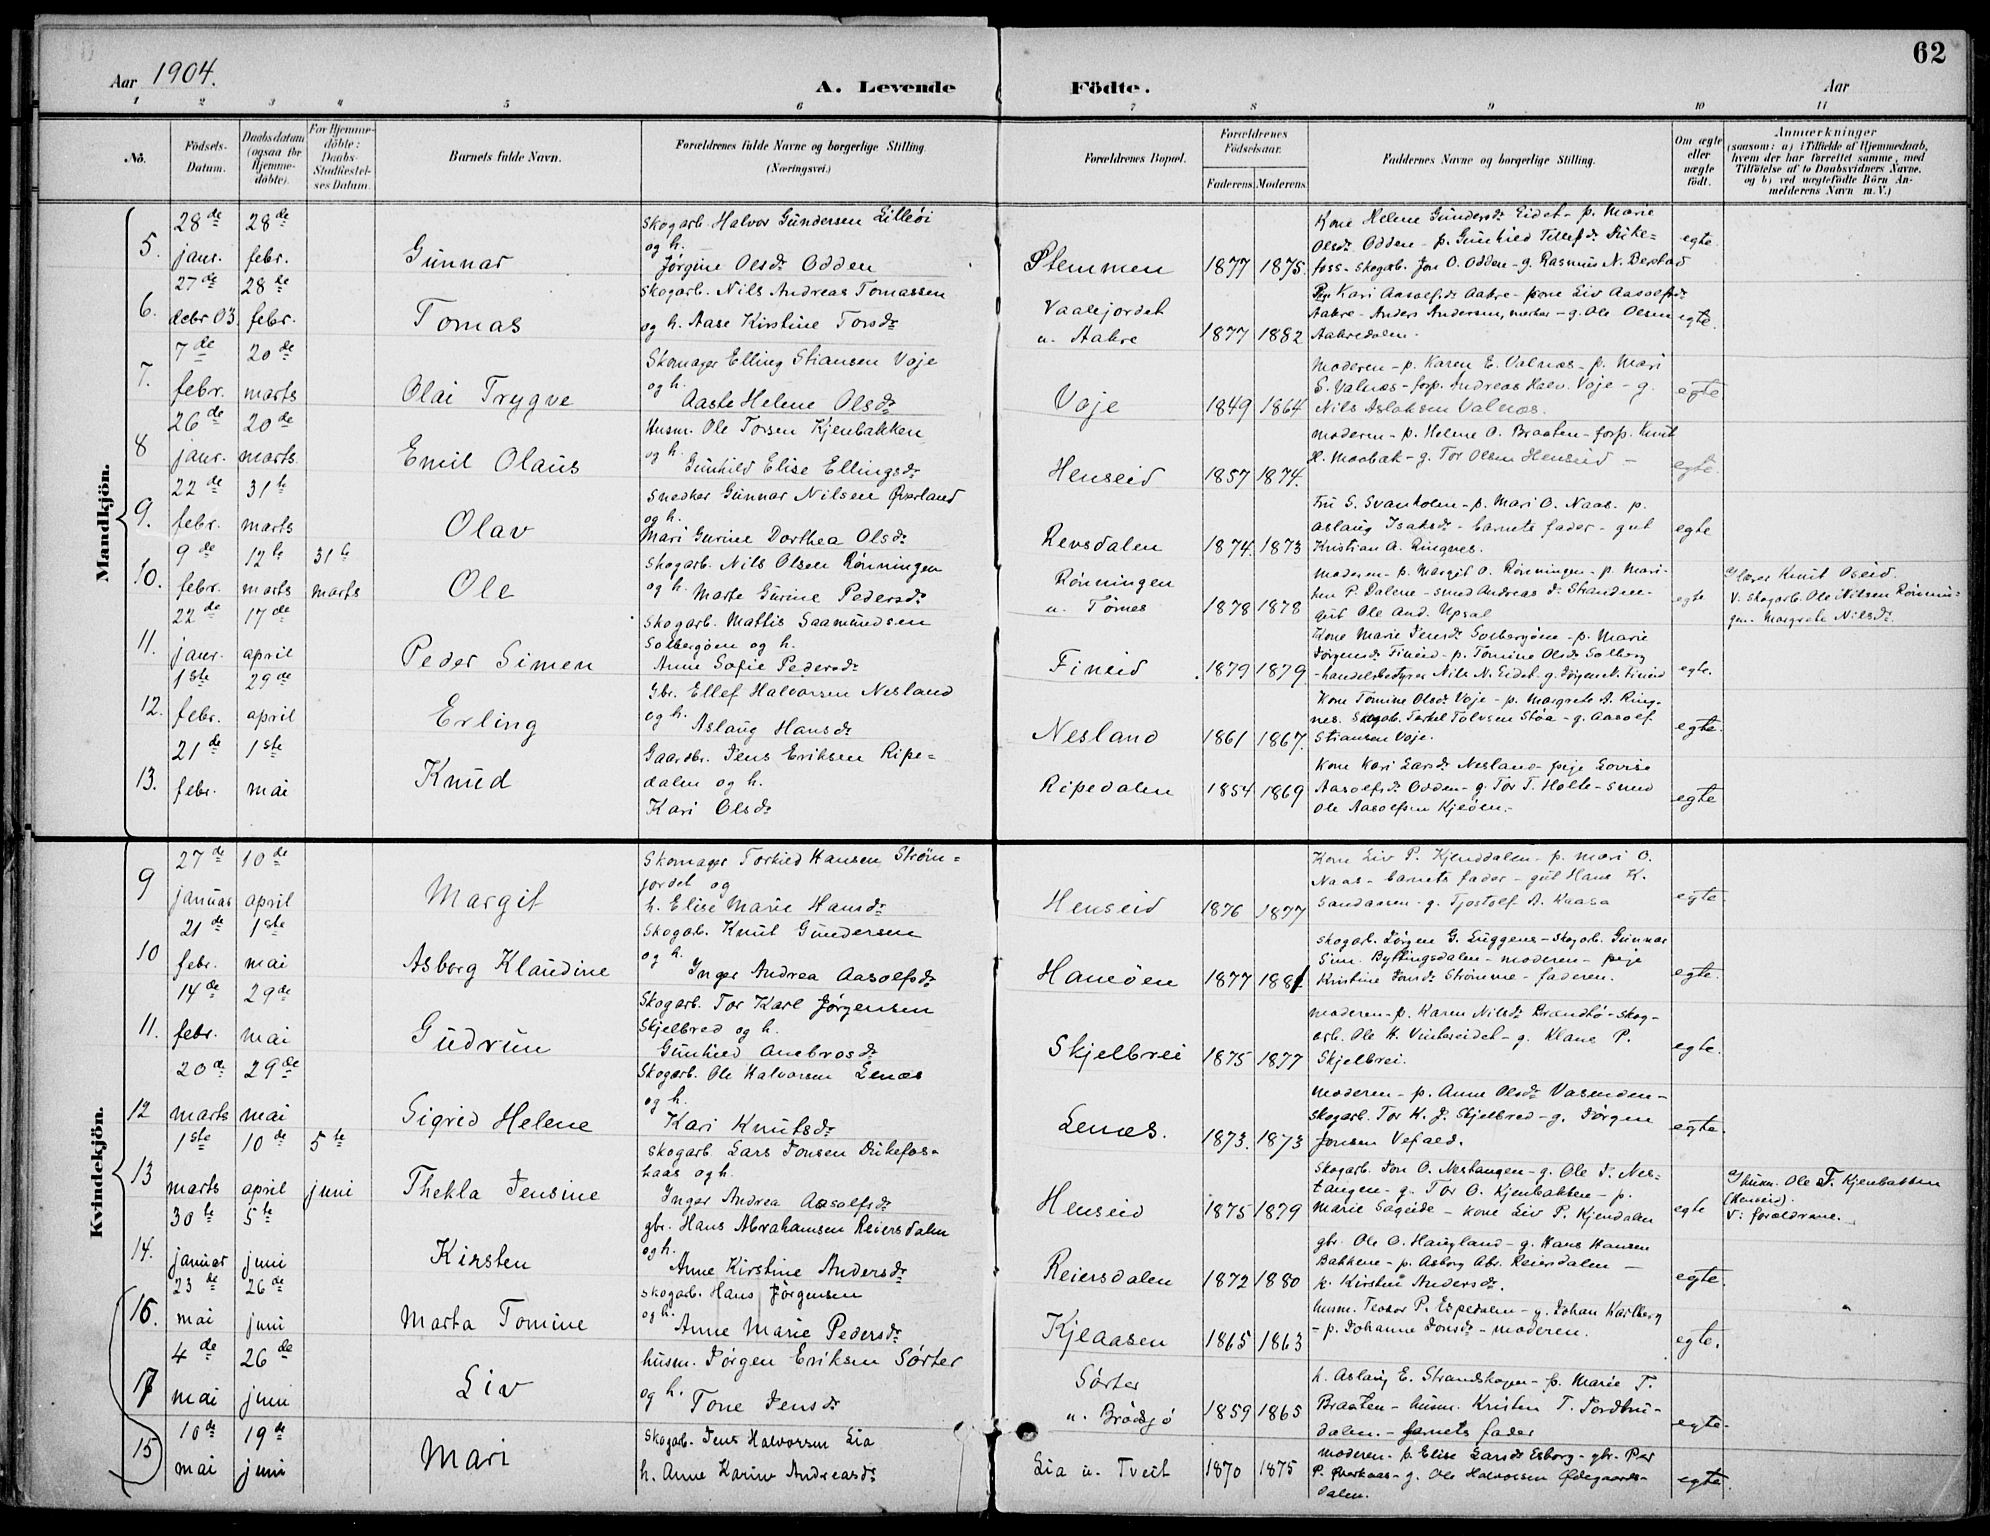 62
Aar 1904.
A. Levende Födte.
Aar
1 2 3 4 5 6 7 8 9 10 11
Nö.
Födsels-Datum.
Daabsdatum (ogsaa for Hjemmedöbte).
For Hjemmedöbte: Daabs-Stadfæstelses Datum.
Barnets fulde Navn.
Forældrenes fulde Navne og borgerlige Stilling. (Næringsvei.)
Forældrenes Bopæl.
Forældrenes Födselsaar.
Faderens Moderens
Faddernes Navne og borgerlige Stilling.
Om ægte eller uægte födt.
Anmærkninger
(saasom: a) i Tilfælde af Hjemmedaab, hvem der har forrettet samme, med Tilföielse af to Daabsvidners Navne, og b) ved uægtefödte Börn Anmelderens Navn m. V.)
Mandkjön.
5. 28de janr. 28de febr. Gunnar
Skogarb. Halvor Gundersen Lilleöi
og h.
Jørgine Olsdr Odden
Stemmen 1877 1875.
Kone Helene Gundersdr Eidet - p. Marie
Olsdr Odden - p. Gunhild Tellefsdr Dike-
foss - skogarb. Jon O. Odden - g. Rasmus N. Berstad
egte
6. 27de decbr 03. 28de febr. Tomas
Skogarb. Nils Andreas Tomassen
og h. Aase Kirstine Torsdr
Vaalejordet
u. Aakre 1877 1882
Pige Kari Aasolfsdr Aakre - kone Liv Aasolfsdr
Aakre - Anders Andersen, - g. Ole Olsen
Aakredalen.
egte.
7. 7de febr. 20de marts Olai Trygve
Skomager Elling Stiansen Voje
og h.
Aaste Helene Olsdr
Voje 1849 1864
Moderen - p. Karen E. Valnæs - p. Mari
E. Valnæs - forp. Andreas Halv. Voje - g.
Nils Aslaksen Valnæs.
egte
8 26de janr. 20de marts. Emil Olaus
Husm. Ole Torsen Kjenbakken
og h.
Gunhild Elise Ellingsdr
Henseid 1857 1874.
moderen - p. Helene O. Braaten - forp. Knut
H. Moobak - g. Tor Olsen Henseid -
egte.
9. 22de febr. 31te marts Olav
Snedker Gunnar Nilsen Øverland
og h.
Mari Gurine Dorthea Olsdr
Revsdalen 1874. 1873
Fru S. Svanholm - p. Mari O. Naas. p.
Aslaug Isaksdr - barnets fader - gut
Kristian A. Ringnes.
egte
10. 9de febr. 12te marts 31te marts Ole
Skogarb. Nils Olsen Rønningen
og h. Marte Gurine Pedersdr
Rönningen
u. Tømes 1878 1878
moderen - p. Margit O. Rønningen - p. Mari-
ken P. Dalene - smed Andreas J. Stranden-
gut Ole And. Upsal
egte
a/ Lærer Knut Oseid.
V. skogarb. Ole Nilsen Rönnin-
gen. Margrete Nilsdr.
11. 22de janr. 17de april Peder Simen
Skogarb. Mattis Saamundsen
Solbergøen og h.
Anne Sofie Pedersdr
Fineid 1879 1879.
Kone Marie Jensdr Solbergöen - p. Marie
Jørgensdr Fineid - p. Tomine Olsdr Solberg
- handelsbestyrer Nils N. Eidet - g. Jørgen N. Fineid
egte.
12. 1ste febr. 29de april Erling
Gbr. Ellef Halvorsen Nesland
og h.
Aslaug Hansdr
Nesland 1861 1867.
Kone Tomine Olsdr Voje - p. Margrete A. Ring-
nes. Skogarb. Torkel Tolvsen Støa - g. Aasolf
Stiansen Voje.
egte.
13. 21de febr. 1ste mai Knud
Gaardbr. Jens Eriksen Ripe-
dalen og h.
Kari Olsdr
Ripedalen 1854 1869
Kone Kari Larsdr Nesland - pige Lovise
Aasolfsdr Odden - g. Tor T. Holte - smed
Ole Aasolfsen Kjeöen.
egte
Kvindekjön.
9 27de januar 10de april Margit
Skomager Torkild Hansen Strøm-
jordet og
h. Elise Marie Hansdr
Henseid 1876 1877
Kone Liv P. Kjenddalen - p. Mari O.
Naas - barnets fader - gut Hans K.
Sandaasen - g. Tjostolf A. Kaasa
egte.
10 21de febr. 1ste mai Asborg Klaudine
Skogarb. Knut Gundersen
og h.
Inger Andrea Aasolfsdr
Haneöen 1877 1881
Skogarb. Jørgen G. Luggens - skogarb. Gunnar
Sim. Byttingsdalen - moderen - pige
Kristine Jonsdr Strömme - faderen.
egte.
11. 14de febr. 29de mai Gudrun
Skogarb. Tor Karl Jørgensen
Skjelbred og h.
Gunhild Ambrosdr
Skjelbrei 1875 1877
moderen - p. Karen Nilsdr - skog-
arb. Ole H. Vintereidet - g. Klaus P.
Skjelbrei.
egte.
12 20de marts 29de mai Sigrid Helene
Skogarb. Ole Halvorsen Lenæs
og h.
Kari Knutsdr
Lenæs. 1873. 1873
moderen - p. Anne Olsdr Vasenden -
skogarb. Tor K. J. Skjelbred - g. Jørgen
Jonsen Vefald.
egte.
13 1ste marts 10de april 5te juni Thekla Jensine
Skogarb Lars Jonsen Dikefos-
haas og h.
Inger Andrea Aasolfsdr
Henseid 1875 1879
Skogarb. Jon O. Nestangen - g. Ole J. Nes-
tangen - g. Tor O. Kjenbakken - p.
Marie Sageide - kone Liv P. Kjendalen
egte
a/ husm. Ole T. Kjenbakken
(Henseid).
V: forældrene.
14. 30te januar 5te juni Kirsten
gbr. Hans Abrahamsen Reiersdalen
og h.
Anne Kirstine Andersdr
Reiersdalen 1872 1880
gbr. Ole O. Haugland - g. Hans Hansen
Bakkene - p. Asborg Abr. Reiersdalen -
p. Kirsten Andersdr.
egte.
16. 23de mai 26de juni Marta Tomine
Skogarb. Hans Jørgensen
og h.
Anne Marie Pedersdr
Kjeaasen 1865 1863
husm. Teodor P. Espedalen - g. Johan Karlberg
- p. Johanne Jonsdr - moderen.
egte.
17 4de mai 26de juni Liv
husm. Jørgen Eriksen Sörter
og h. Tone Jensdr
Sörter
u. Brödsjø 1859 1865
h. Aslaug E. Strandskogen - p. Marie T.
Braaten - husm. Kristen T. Tordbru-
dalen. - barnets fader
egte.
15 10de mai 19de juni Mari
Skogarb. Jens Halvorsen Lia
h. Anne Karine Andreasdr
Lia u. Tveit 1870 1875
moderen - p. Elise Larsdr Esborg - gbr. Per
P. - g. Ole Halvorsen Ødegaards-
dalen.
egte.